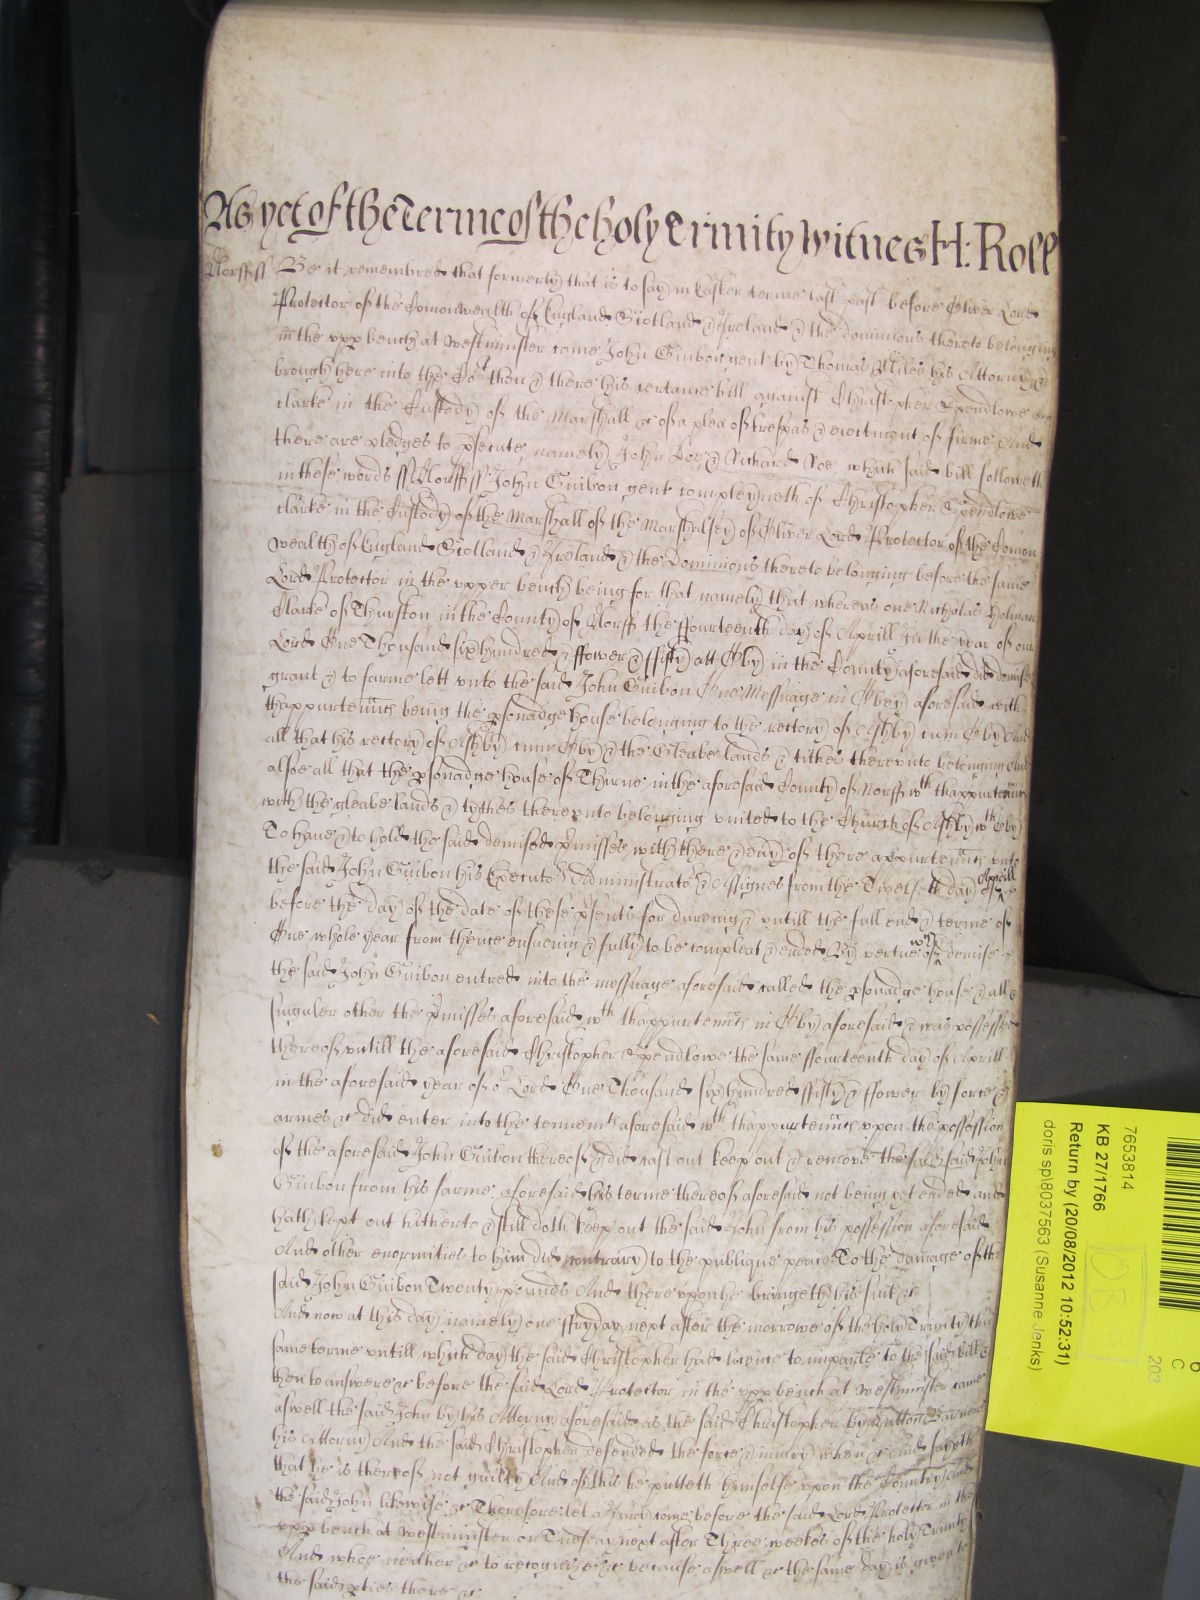 As yet of the Terme of the holy Trinity Witnes H: Roll
Norff ss Be it remembred that formerly that is to say in Easter terme last past before Oliver Lord
Protector of the Comonwealth of England Scotland & Ireland & the dominions thereto belonging
in the upp bench at Westminster came John Guibon gent by Thomas Miles his Attorny &
brough here into the Cort then & there his certaine bill against Christopher Spendlowe
clarke in the Custody of the Marshall &c of a plea of trespas & eiectment of firme And
there are pledges to psecute namely John Doe & Richard Roe which said bill followeth
in these words ss Norff ss John Guibon gent compleyneth of Christopher Spendlowe
clarke in the Custody of the Marshall of the Marshalsey of Oliver Lord Protector of the Comon
wealth of England Scotland & Ireland & the Dominions thereto belonging before the same
Lord Protector in the upper bench being for that namely that whereas one Nicholas Holman
Clarke of Thurston in the County of Norff the ffourteenth day of Aprill In the year of our
Lord One Thousand six hundred & ffower & ffifty att Oby in the County aforesaid did demise
grant & to farme lett unto the said John Guibon One Messuage in Obey aforesaid with
thappurtennts being the psonadge house belonging to the rectory of Ashby cum Oby And
all that his rectory of Ashby cum Oby & the Gleabe lands & tithes thereunto belonging And
alsoe all that the psonadge house of Thirne in the aforesaid County of Norff wth thappurtennts
with the gleabe lands & tythes thereunto belonging united to the Church of Ashby wth Oby
To have & to hold the said demised pmisses with there & evry of there appurtennts unto
the said John Guibon his Executors Administrators & Assignes from the Twelfeth day of Aprill
before the day of the date of these psents for dureing & untill the full end & terme of
One whole year from thence ensueing & fully to be compleat & ended By vertue of wch demise
the said John Guibon entred into the messuage aforesaid called the psonadge house & all &
singuler other the pmisses aforesaid wth thappurtennts in Oby aforesaid & was possessed
thereof untill the aforesaid Christopher Spendlowe the same ffourteenth day of Aprill
in the aforesaid year of or Lord One Thousand six hundred ffifty & ffower by force &
armes &c did enter into the tennemts aforesaid wth thappurtennts upon the possession
of the aforesaid John Guibon thereof & did cast out keep out & remove the said John
Guibon from his farme aforesaid his terme thereof aforesaid not being yet ended and
hath kept out hitherto & still doth keep out the said John from his possession aforesaid
And other enormities to him did contrary to the publique peace To the damage of the
said John Guibon Twenty pounds And thereupon he bringeth his suit &c
And now at this day namely one ffryday next after the morrowe of the holy Trinity this
same terme untill which day the said Christopher had licence to imparle to the said bill &
then to answere &c before the said Lord Protector in the upp bench at Westminster came
aswell the said John by his Attorny aforesaid as the said Christopher by
his Attorny And the said Christopher defended the force & iniury when &c And sayeth
that he is thereof not guilty And of this he putteth himselfe upon the Country And
the said John likewise &c Therefore let a Jury come before the said Lord Protector in the
upp bench at Westminster on Tuesday next after Three weekes of the holy Trinity
And whoe neither &c to recognize &c because aswell &c the same day is given to
the said pties there &c
7653814
KB 27/1766
Return by (20/08/2012 10:52:31)
doris sp\8037563 (Susanne Jenks)
203
C
6